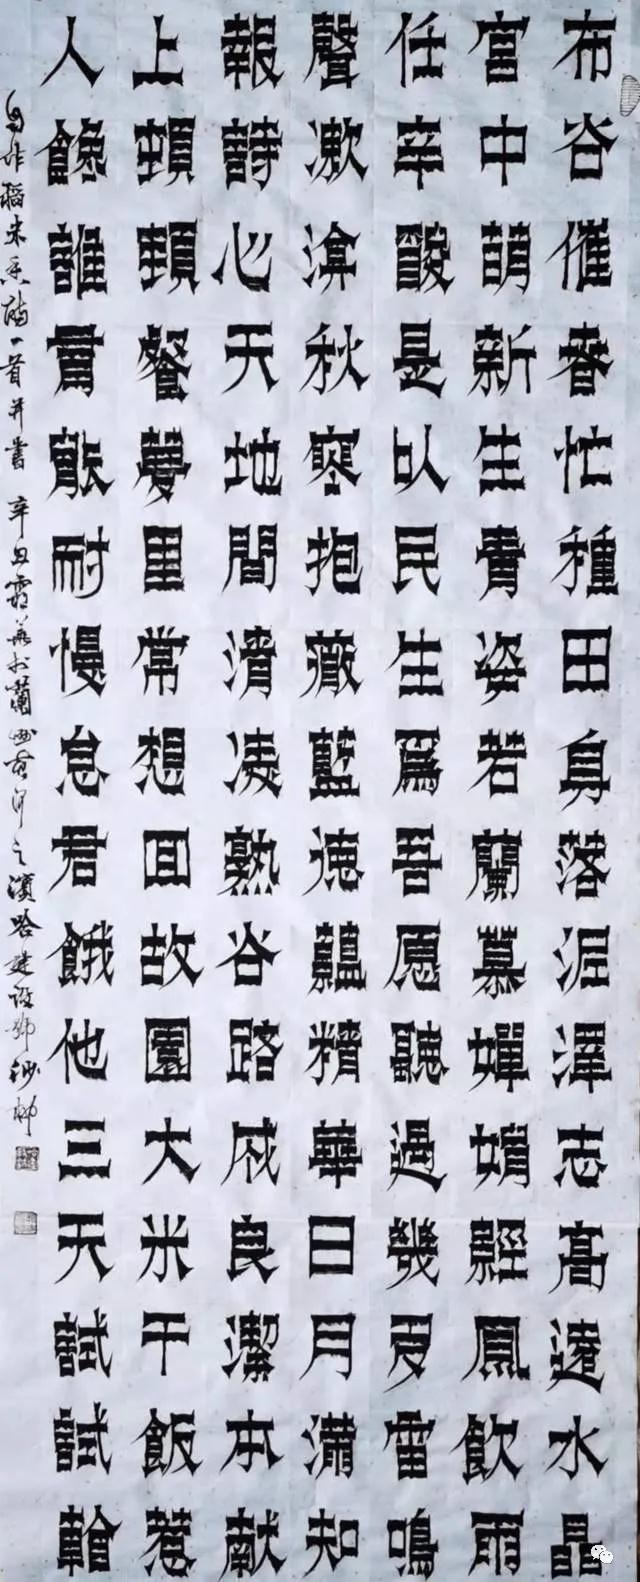 布谷催春忙種田身落泥澤志高遠水晶
宫中萌新生貴姿若蘭慕嬋娟經鳳飲雨
任辛酸是以民生爲吾愿聽過幾更雷鳴
聲漱秋寒抱藏藍德蘊精華日月滿知
報詩心天地間清淒熟谷路成良潔本献
上頓頓餐夢里常想回故園大米干飯惹
人饞誰能耐慢怠君餓他三天試試
自作稻米香一首并書 辛丑霜華於蘭州黄河之濱哈建设號沙柳